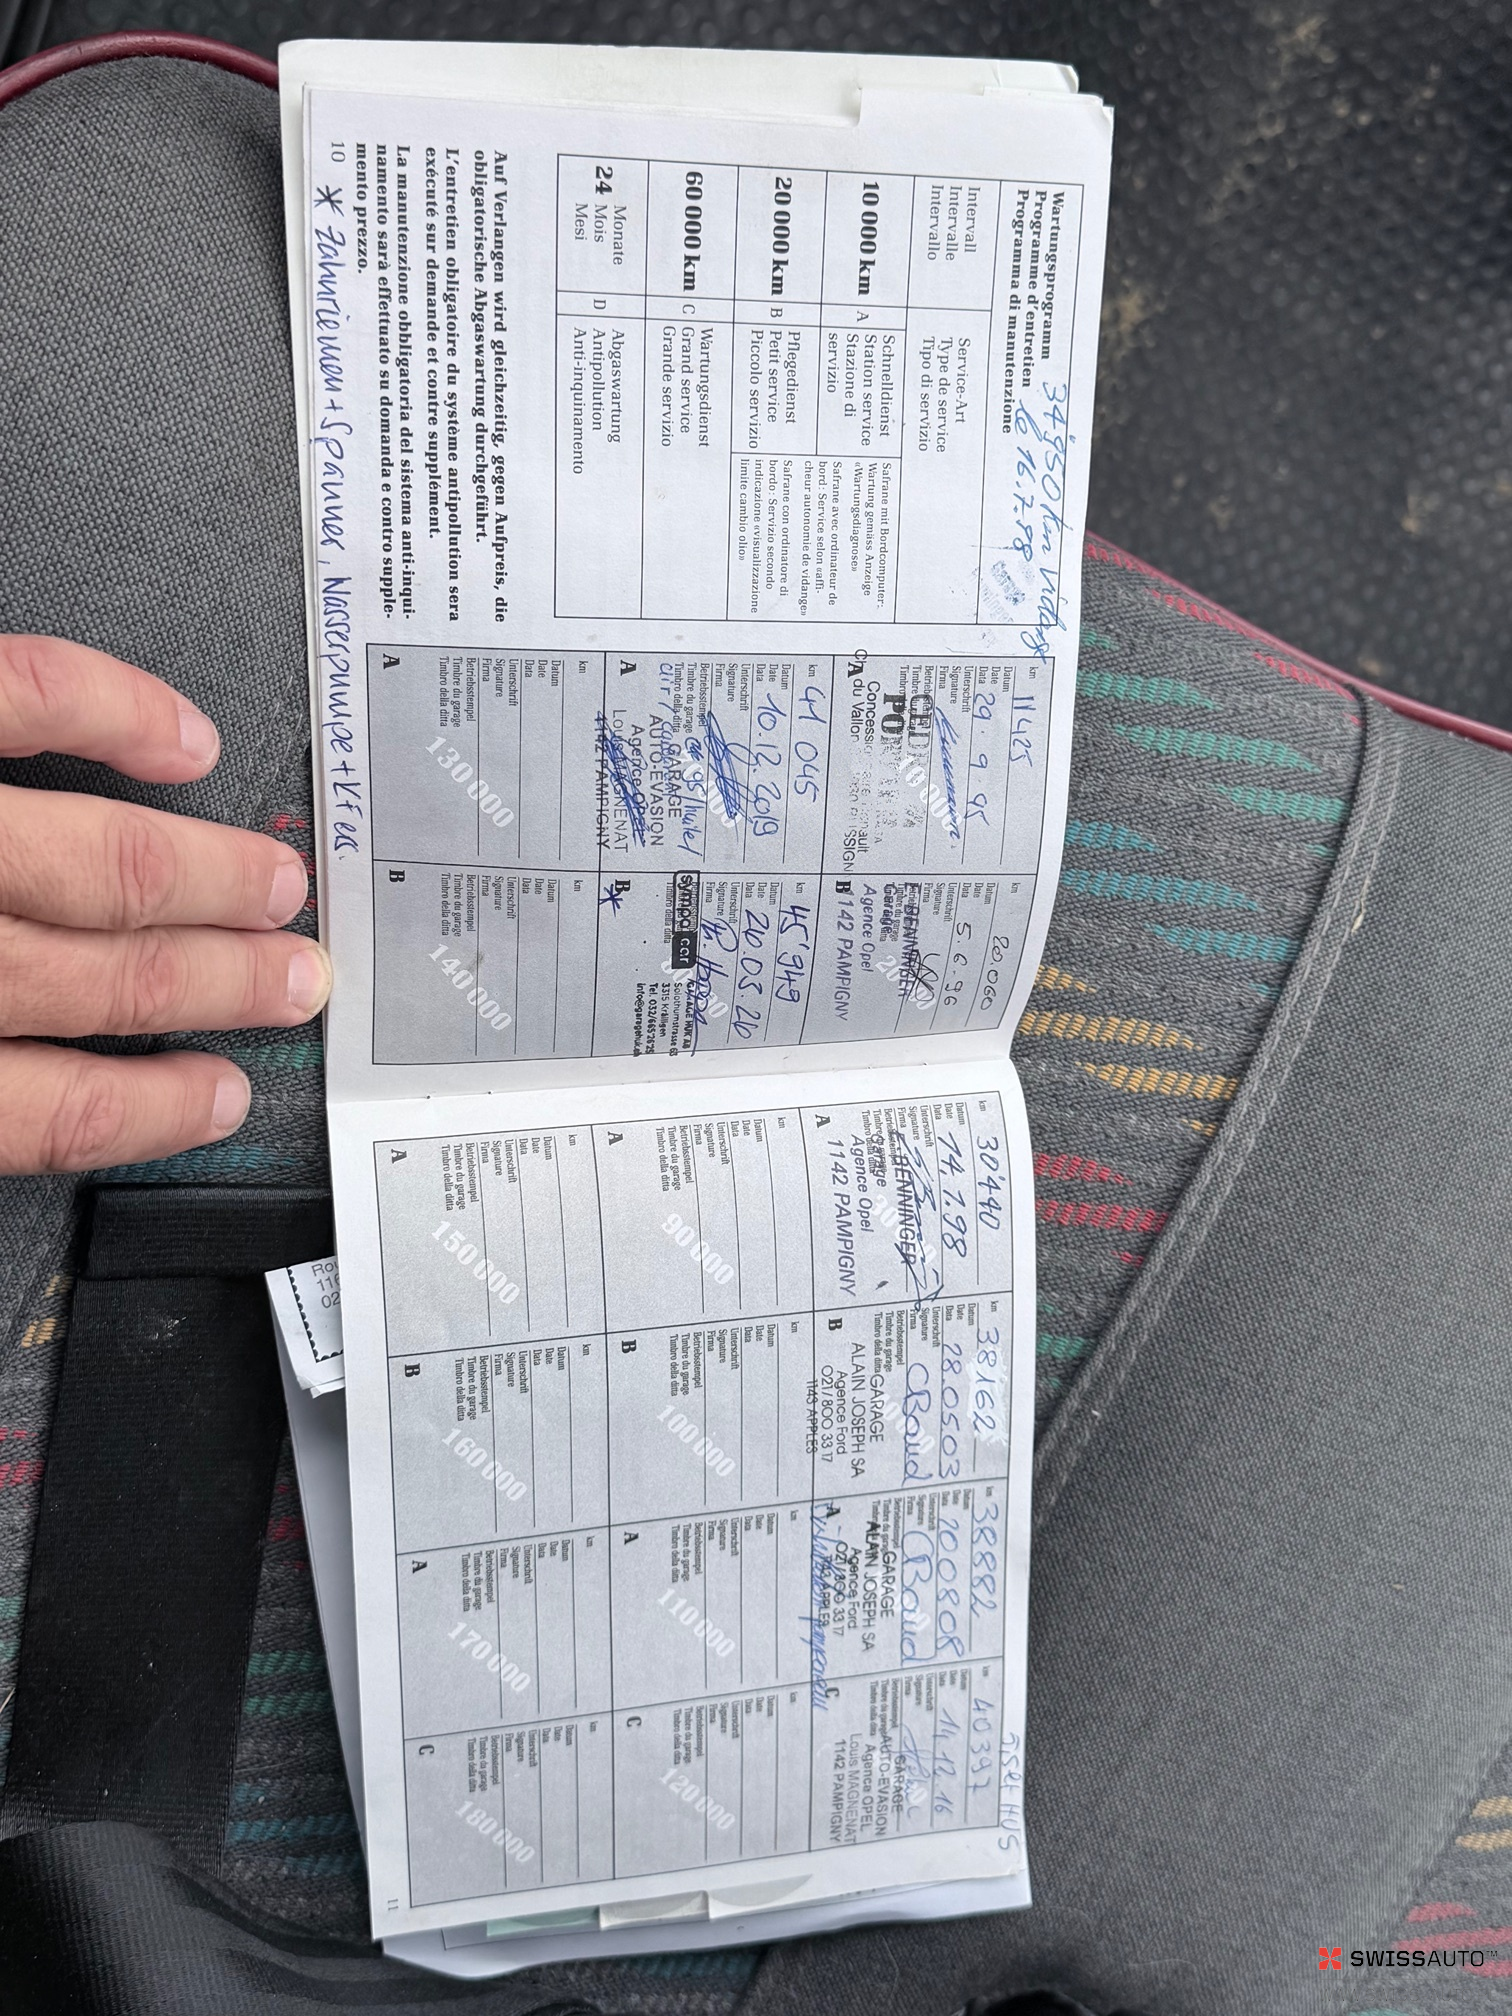 34'950 km Vidange
le 16.7.98
Wartungsprogramm
Programme d'entretien
Programma di manutenzione
Intervall
Intervalle
Intervallo
Service-Art
Type de service
Tipo di servizio
10 000 km
A
Schnelldienst
Station service
Stazione di
servizio
Safrane mit Bordcomputer:
Wartung gemäss Anzeige
«Wartungsdiagnose»
Safrane avec ordinateur de
bord: Service selon «affi-
cheur autonomie de vidange»
Safrane con ordinatore di
bordo: Servizio secondo
indicazione «visualizzazione
limite cambio olio»
20 000 km
B
Pflegedienst
Petit service
Piccolo servizio
60 000 km
C
Wartungsdienst
Grand service
Grande servizio
24
Monate
Mois
Mesi
D
Abgaswartung
Antipollution
Anti-inquinamento
Auf Verlangen wird gleichzeitig, gegen Aufpreis, die
obligatorische Abgaswartung durchgeführt.
L'entretien obligatoire du système antipollution sera
exécuté sur demande et contre supplément.
La manutenzione obbligatoria del sistema anti-inqui-
namento sarà effettuato su domanda e contro supple-
mento prezzo.
10
* Zahnriemen + Spanner, Wasserpumpe + KFers.
km 11425
Datum
Date
Data 29.9.95
Unterschrift
Signature
Firma
Concession
Ch. du Vallon
A
km 20.060
Datum
Date
Data 5.6.96
Unterschrift
Signature
Firma
BENNINGER
Garage
Agence Opel
1142 PAMPIGNY
B
km 41 045
Datum
Date
Data 10.12.2019
Unterschrift
Signature
Firma
Betriebsstempel
Timbre du garage
Timbro della ditta
GARAGE
AUTO-EVASION
Agence Opel
Louis MAGNENAT
1142 PAMPIGNY
A
km 45'949
Datum
Date
Data 26.03.26
Unterschrift
Signature
Firma
sympa car
GARAGE HUK AG
Solothurnstrasse 63
3315 Kräiligen
Tel. 032/665 26 25
info@garagehuk.ch
B
*
km
Datum
Date
Data
Unterschrift
Signature
Firma
Betriebsstempel
Timbre du garage
Timbro della ditta
130 000
A
km
Datum
Date
Data
Unterschrift
Signature
Firma
Betriebsstempel
Timbre du garage
Timbro della ditta
140 000
B
km 30'440
Datum
Date
Data 14.7.98
Unterschrift
Signature
Firma
BENNINGER
Garage
Agence Opel
1142 PAMPIGNY
A
km 38162
Datum
Date
Data 280503
Unterschrift
Signature
Firma
Betriebsstempel
Timbre du garage
Timbro della ditta
GARAGE
ALAIN JOSEPH SA
Agence Ford
021/800 33 17
1143 APPLES
B
km 38882
Datum
Date
Data 200808
Unterschrift
Signature
Firma
GARAGE
ALAIN JOSEPH SA
Agence Ford
021/800 33 17
1143 APPLES
A
km 40397
Datum
Date
Data 14 12 16
Unterschrift
Signature
Firma
GARAGE
AUTO-EVASION
Agence OPEL
Louis MAGNENAT
1142 PAMPIGNY
C
km
Datum
Date
Data
Unterschrift
Signature
Firma
Betriebsstempel
Timbre du garage
Timbro della ditta
90 000
A
km
Datum
Date
Data
Unterschrift
Signature
Firma
Betriebsstempel
Timbre du garage
Timbro della ditta
100 000
B
km
Datum
Date
Data
Unterschrift
Signature
Firma
Betriebsstempel
Timbre du garage
Timbro della ditta
110 000
A
km
Datum
Date
Data
Unterschrift
Signature
Firma
Betriebsstempel
Timbre du garage
Timbro della ditta
120 000
C
km
Datum
Date
Data
Unterschrift
Signature
Firma
Betriebsstempel
Timbre du garage
Timbro della ditta
150 000
A
km
Datum
Date
Data
Unterschrift
Signature
Firma
Betriebsstempel
Timbre du garage
Timbro della ditta
160 000
B
km
Datum
Date
Data
Unterschrift
Signature
Firma
Betriebsstempel
Timbre du garage
Timbro della ditta
170 000
A
km
Datum
Date
Data
Unterschrift
Signature
Firma
Betriebsstempel
Timbre du garage
Timbro della ditta
180 000
C
11
SWISSAUTO™